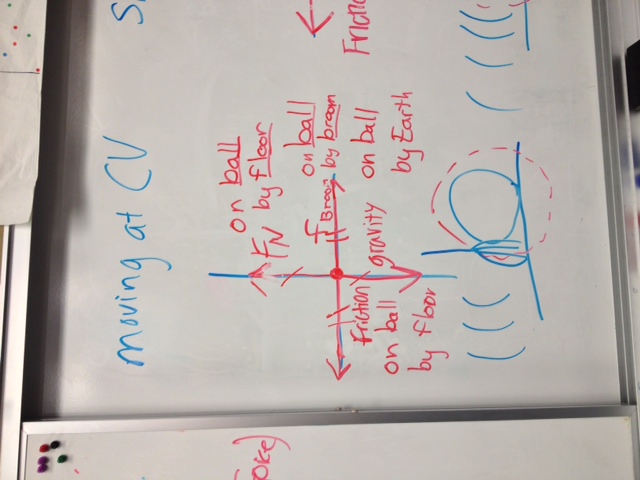 moving at CV
on ball
by floor
FN
on ball
by broom
F Broom
Friction
on ball
by floor
gravity
on ball
by Earth
Friction
oke)